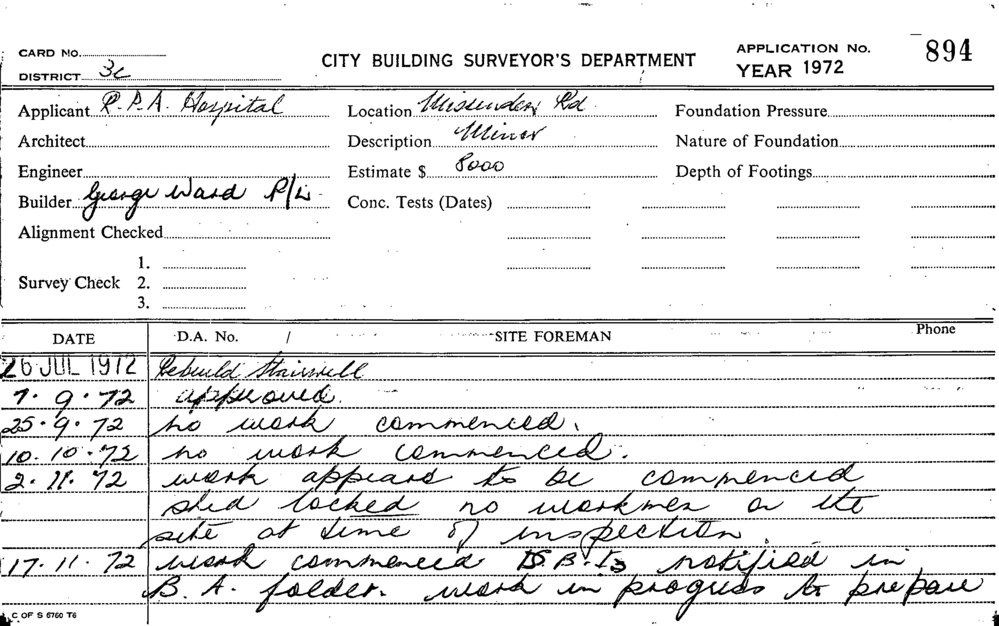 CARD NO.
DISTRICT 3c
CITY BUILDING SURVEYOR'S DEPARTMENT
APPLICATION No. 894
YEAR 1972
Applicant R.P.A. Hospital Location Missenden Rd. Foundation Pressure
Architect Description Minor Nature of Foundation
Engineer Estimate $ 8000 Depth of Footings
Builder George Ward P/L Conc. Tests (Dates)
Alignment Checked
1.
Survey Check 2.
3.
DATE D.A. No. / SITE FOREMAN Phone
26 JUL 1972 Rebuild Stairwell
7.9.72 approved.
25.9.72 no work commenced.
10.10.72 no work commenced.
2.11.72 work appears to be commenced
shed locked no workmen on the
site at time of inspection.
17.11.72 work commenced D.B.I's notified in
B.A. folder. work in progress to prepare
C OF S 6760 T6